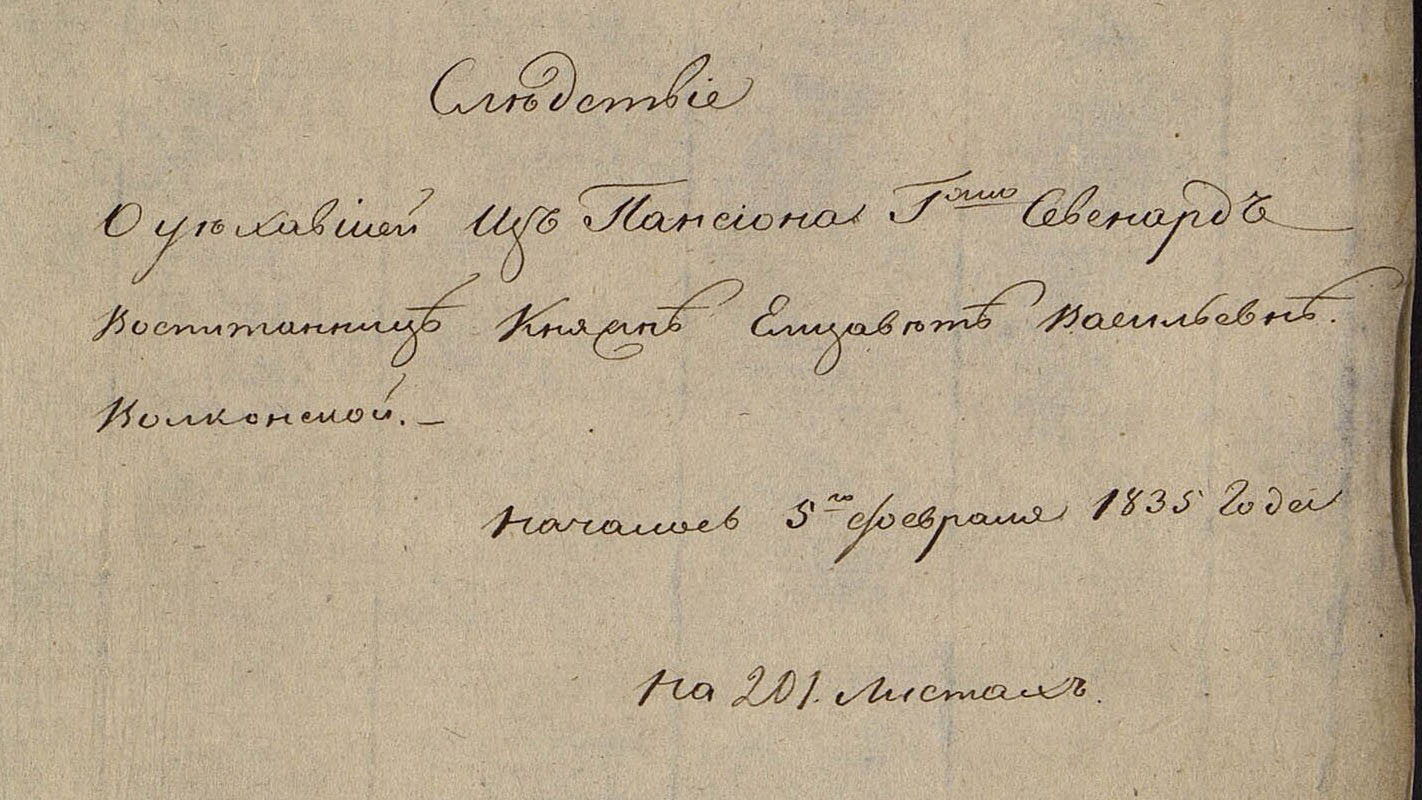 Слѣдствіе
О уѣхавшей изъ Пансіона Г<sup>жи</sup> Севенардъ
Воспитанницѣ Княжнѣ Елизаветѣ Васильевнѣ.
Волконской. —
Началось 5<sup>го</sup> февраля 1835 Года
На 201. Листахъ.